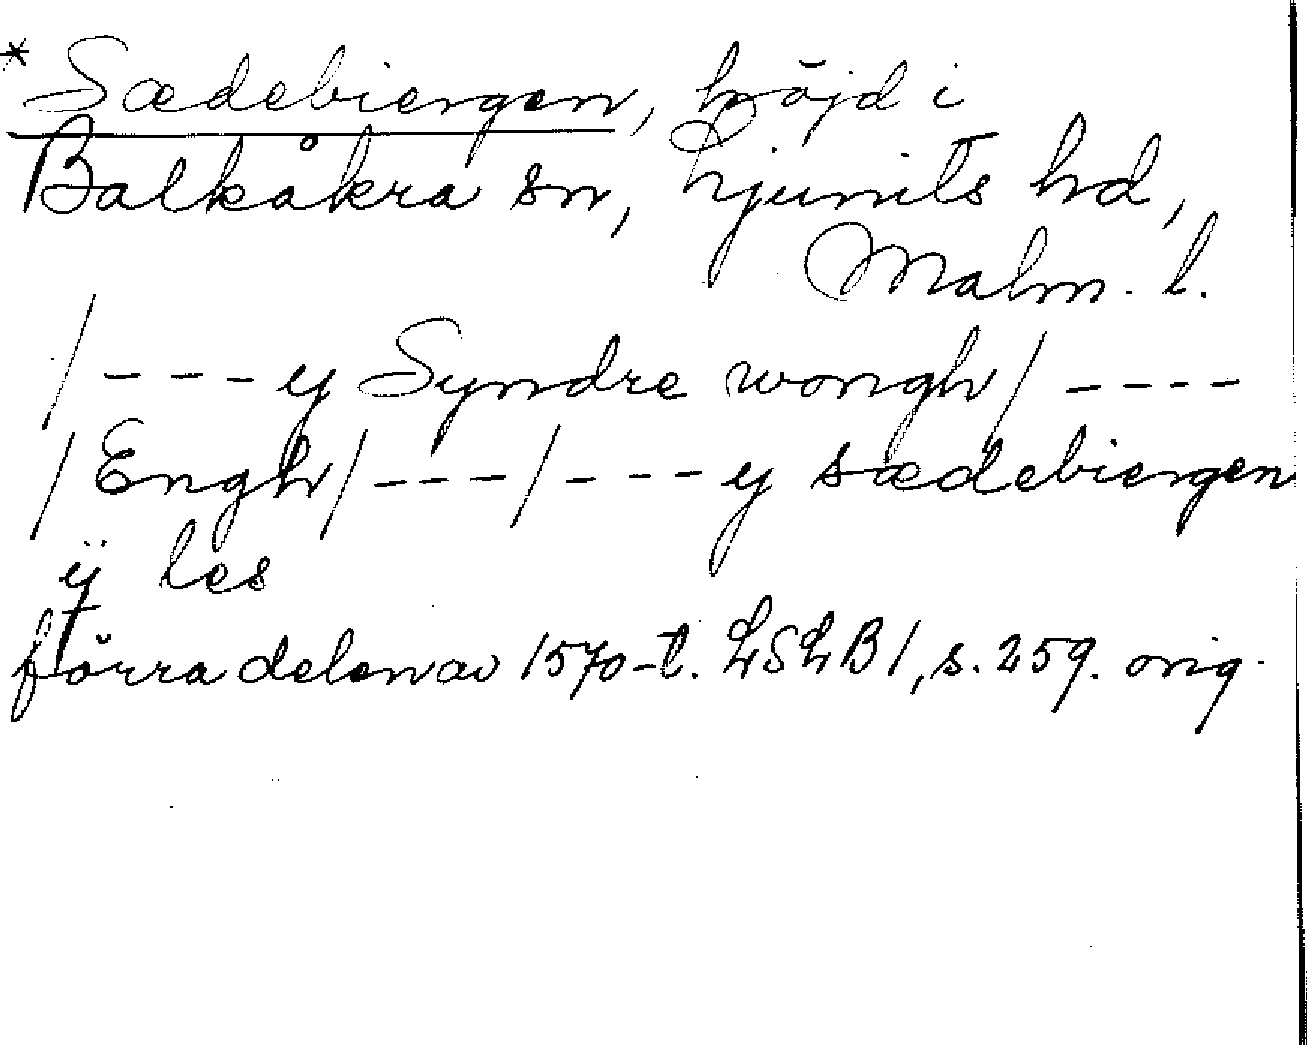 * Sædebiergen, höjd i
Balkåkra sn, Ljunits hd,
Malm. l.
/ - - - y Syndre wongh / - - - -
/ Engh / - - - / - - - y sædebiergen
ÿ les
förra delen av 1570-t. LSLB 1, s. 259. orig.